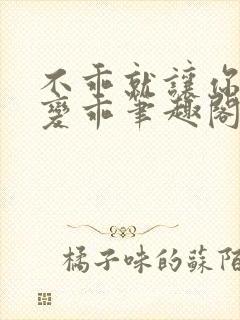 不乖就讓你
變乖筆趣閣
橘子味的蘇陌